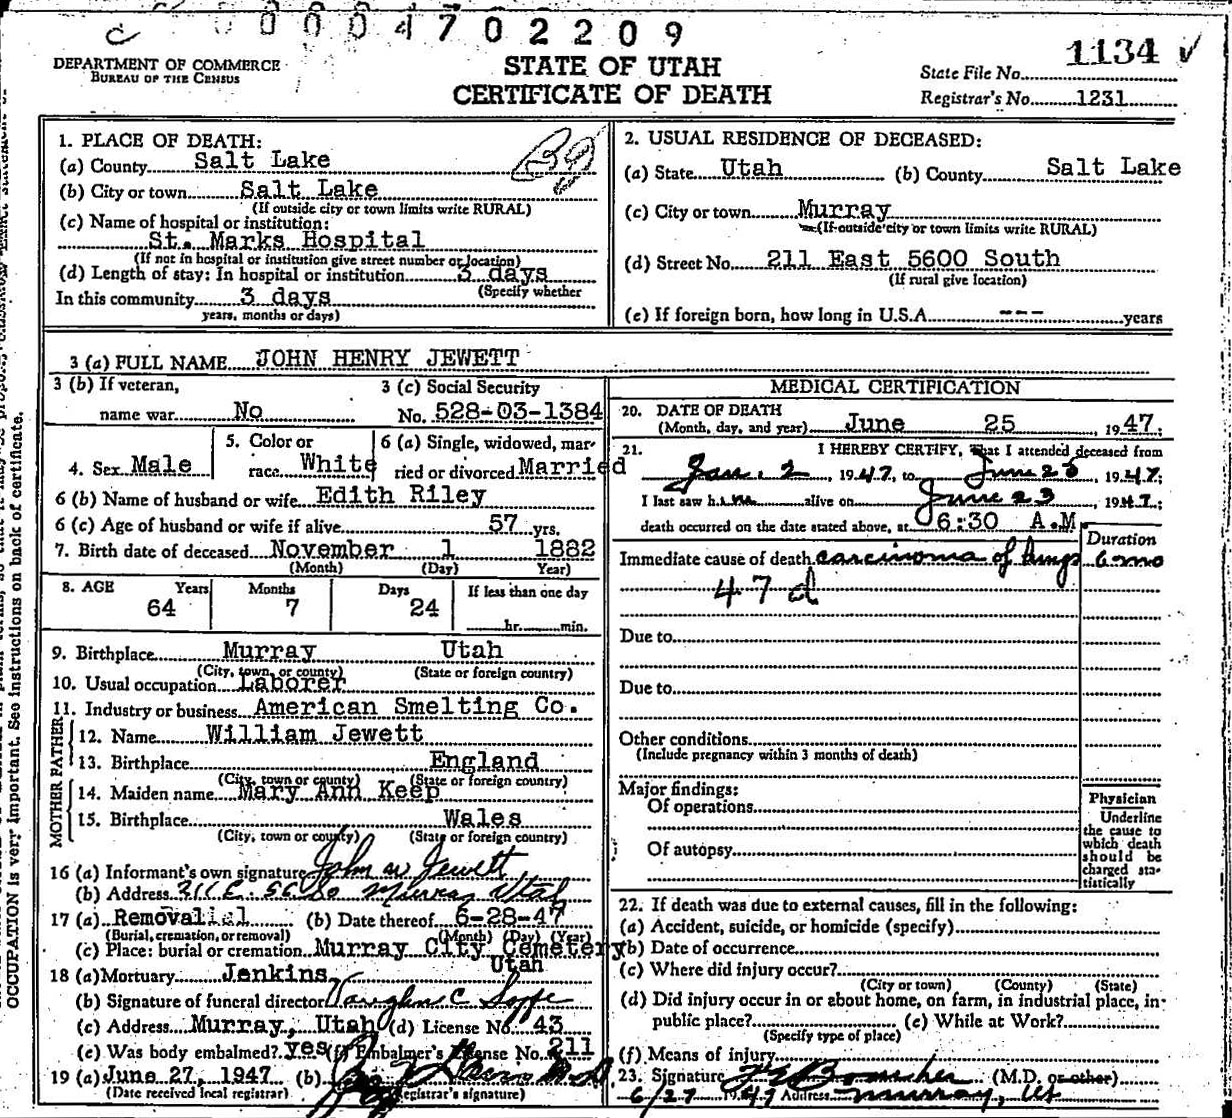 c 0004702209
1134 ✓
DEPARTMENT OF COMMERCE
BUREAU OF THE CENSUS
STATE OF UTAH
CERTIFICATE OF DEATH
State File No.
Registrar's No. 1231
1. PLACE OF DEATH:
(a) County Salt Lake
(b) City or town Salt Lake
(If outside city or town limits write RURAL)
(c) Name of hospital or institution:
St. Marks Hospital
(If not in hospital or institution give street number or location)
(d) Length of stay: In hospital or institution 3 days
(Specify whether
In this community 3 days
years, months or days)
2. USUAL RESIDENCE OF DECEASED:
(a) State Utah (b) County Salt Lake
(c) City or town Murray
(If outside city or town limits write RURAL)
(d) Street No. 211 East 5600 South
(If rural give location)
(e) If foreign born, how long in U.S.A. --- years
3 (a) FULL NAME JOHN HENRY JEWETT
3 (b) If veteran, 3 (c) Social Security
name war No No. 528-03-1384
4. Sex Male 5. Color or race White 6 (a) Single, widowed, married or divorced Married
6 (b) Name of husband or wife Edith Riley
6 (c) Age of husband or wife if alive 57 yrs.
7. Birth date of deceased November 1 1882
(Month) (Day) Year)
8. AGE Years Months Days If less than one day
64 7 24 hr. min.
9. Birthplace Murray Utah
(City, town, or county) (State or foreign country)
10. Usual occupation Laborer
11. Industry or business American Smelting Co.
FATHER
12. Name William Jewett
13. Birthplace England
(City, town or county) (State or foreign country)
MOTHER
14. Maiden name Mary Ann Keep
15. Birthplace Wales
(City, town or county) (State or foreign country)
16 (a) Informant's own signature John W Jewett
(b) Address 211 E. 56 So Murray Utah
17 (a) Removal (b) Date thereof 6-28-47
(Burial, cremation, or removal) (Month) (Day) (Year)
(c) Place: burial or cremation Murray City Cemetery
Utah
18 (a) Mortuary Jenkins
(b) Signature of funeral director Vaughn C
(c) Address Murray, Utah (d) License No. 43
(e) Was body embalmed? yes (f) Embalmer's License No. 211
19 (a) June 27, 1947 (b)
(Date received local registrar) Registrar's signature)
MEDICAL CERTIFICATION
20. DATE OF DEATH
(Month, day, and year) June 25 1947;
21. I HEREBY CERTIFY, That I attended deceased from
Jan. 2, 1947, to June 25 1947;
I last saw him alive on June 23 1947;
death occurred on the date stated above, at 6:30 A.M
Duration
Immediate cause of death carcinoma of lungs 6 mo
47 d
Due to
Due to
Other conditions
(Include pregnancy within 3 months of death)
Major findings:
Of operations
Of autopsy
Physician
Underline
the cause to
which death
should be
charged sta-
tistically
22. If death was due to external causes, fill in the following:
(a) Accident, suicide, or homicide (specify)
(b) Date of occurrence
(c) Where did injury occur?
(City or town) (County) (State)
(d) Did injury occur in or about home, on farm, in industrial place, in-
public place? (e) While at Work?
(Specify type of place)
(f) Means of injury
23. Signature (M.D. or other)
6/27 1947 Address Murray, Ut
OCCUPATION is very important. See instructions on back of certificate.